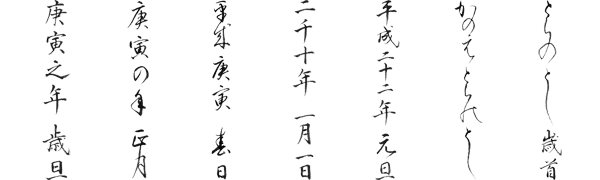 とらのとし 歳首
かのえとらのとし
平成二十二年 元旦
二千十年 一月一日
平成庚寅 春日
庚寅の年 正月
庚寅之年 歳旦